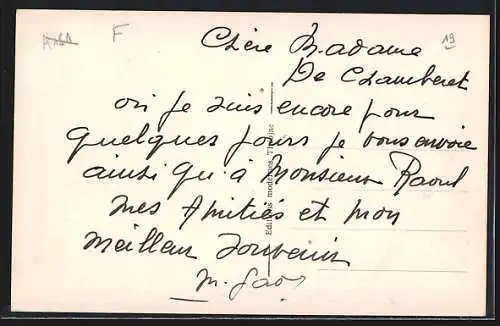 F
19
Chère Madame
De Chamberet
où je suis encore pour
quelques jours je vous envoie
ainsi qu'à Monsieur Raoul
mes Amitiés et mon
meilleur Souvenir
Editions modernes